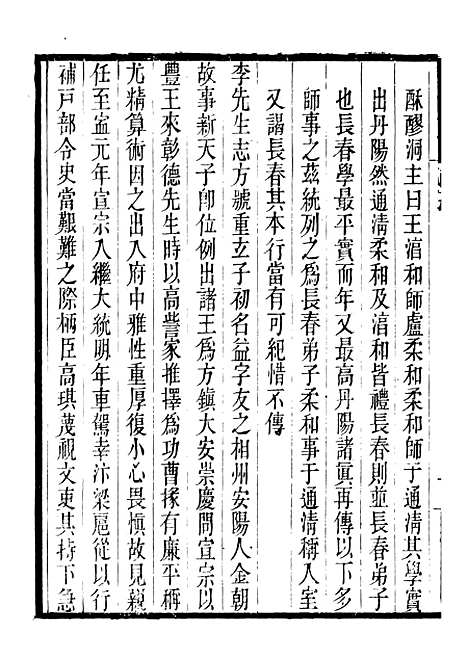 酥醪洞主曰王涫和師盧柔和柔和師于通清其學實
出丹陽然通清柔和及涫和皆禮長春則並長春弟子
也長春學最平實而年又最高丹陽諸眞再傳以下多
師事之茲統列之為長春弟子柔和事于通清稱入室
又謁長春其本行當有可紀惜不傳
李先生志方號重玄子初名益字友之相州安陽人金朝
故事新天子即位例出諸王為方鎮大安崇慶間宣宗以
豐王來彰德先生時以高訾家推擇為功曹掾有廉平稱
尤精算術因之出入府中雅性重厚復小心畏慎故見親
任至寧元年宣宗入繼大統明年車駕幸汴梁扈從以行
補戸部令史當艱難之際柄臣高琪蔑視文吏其持下急